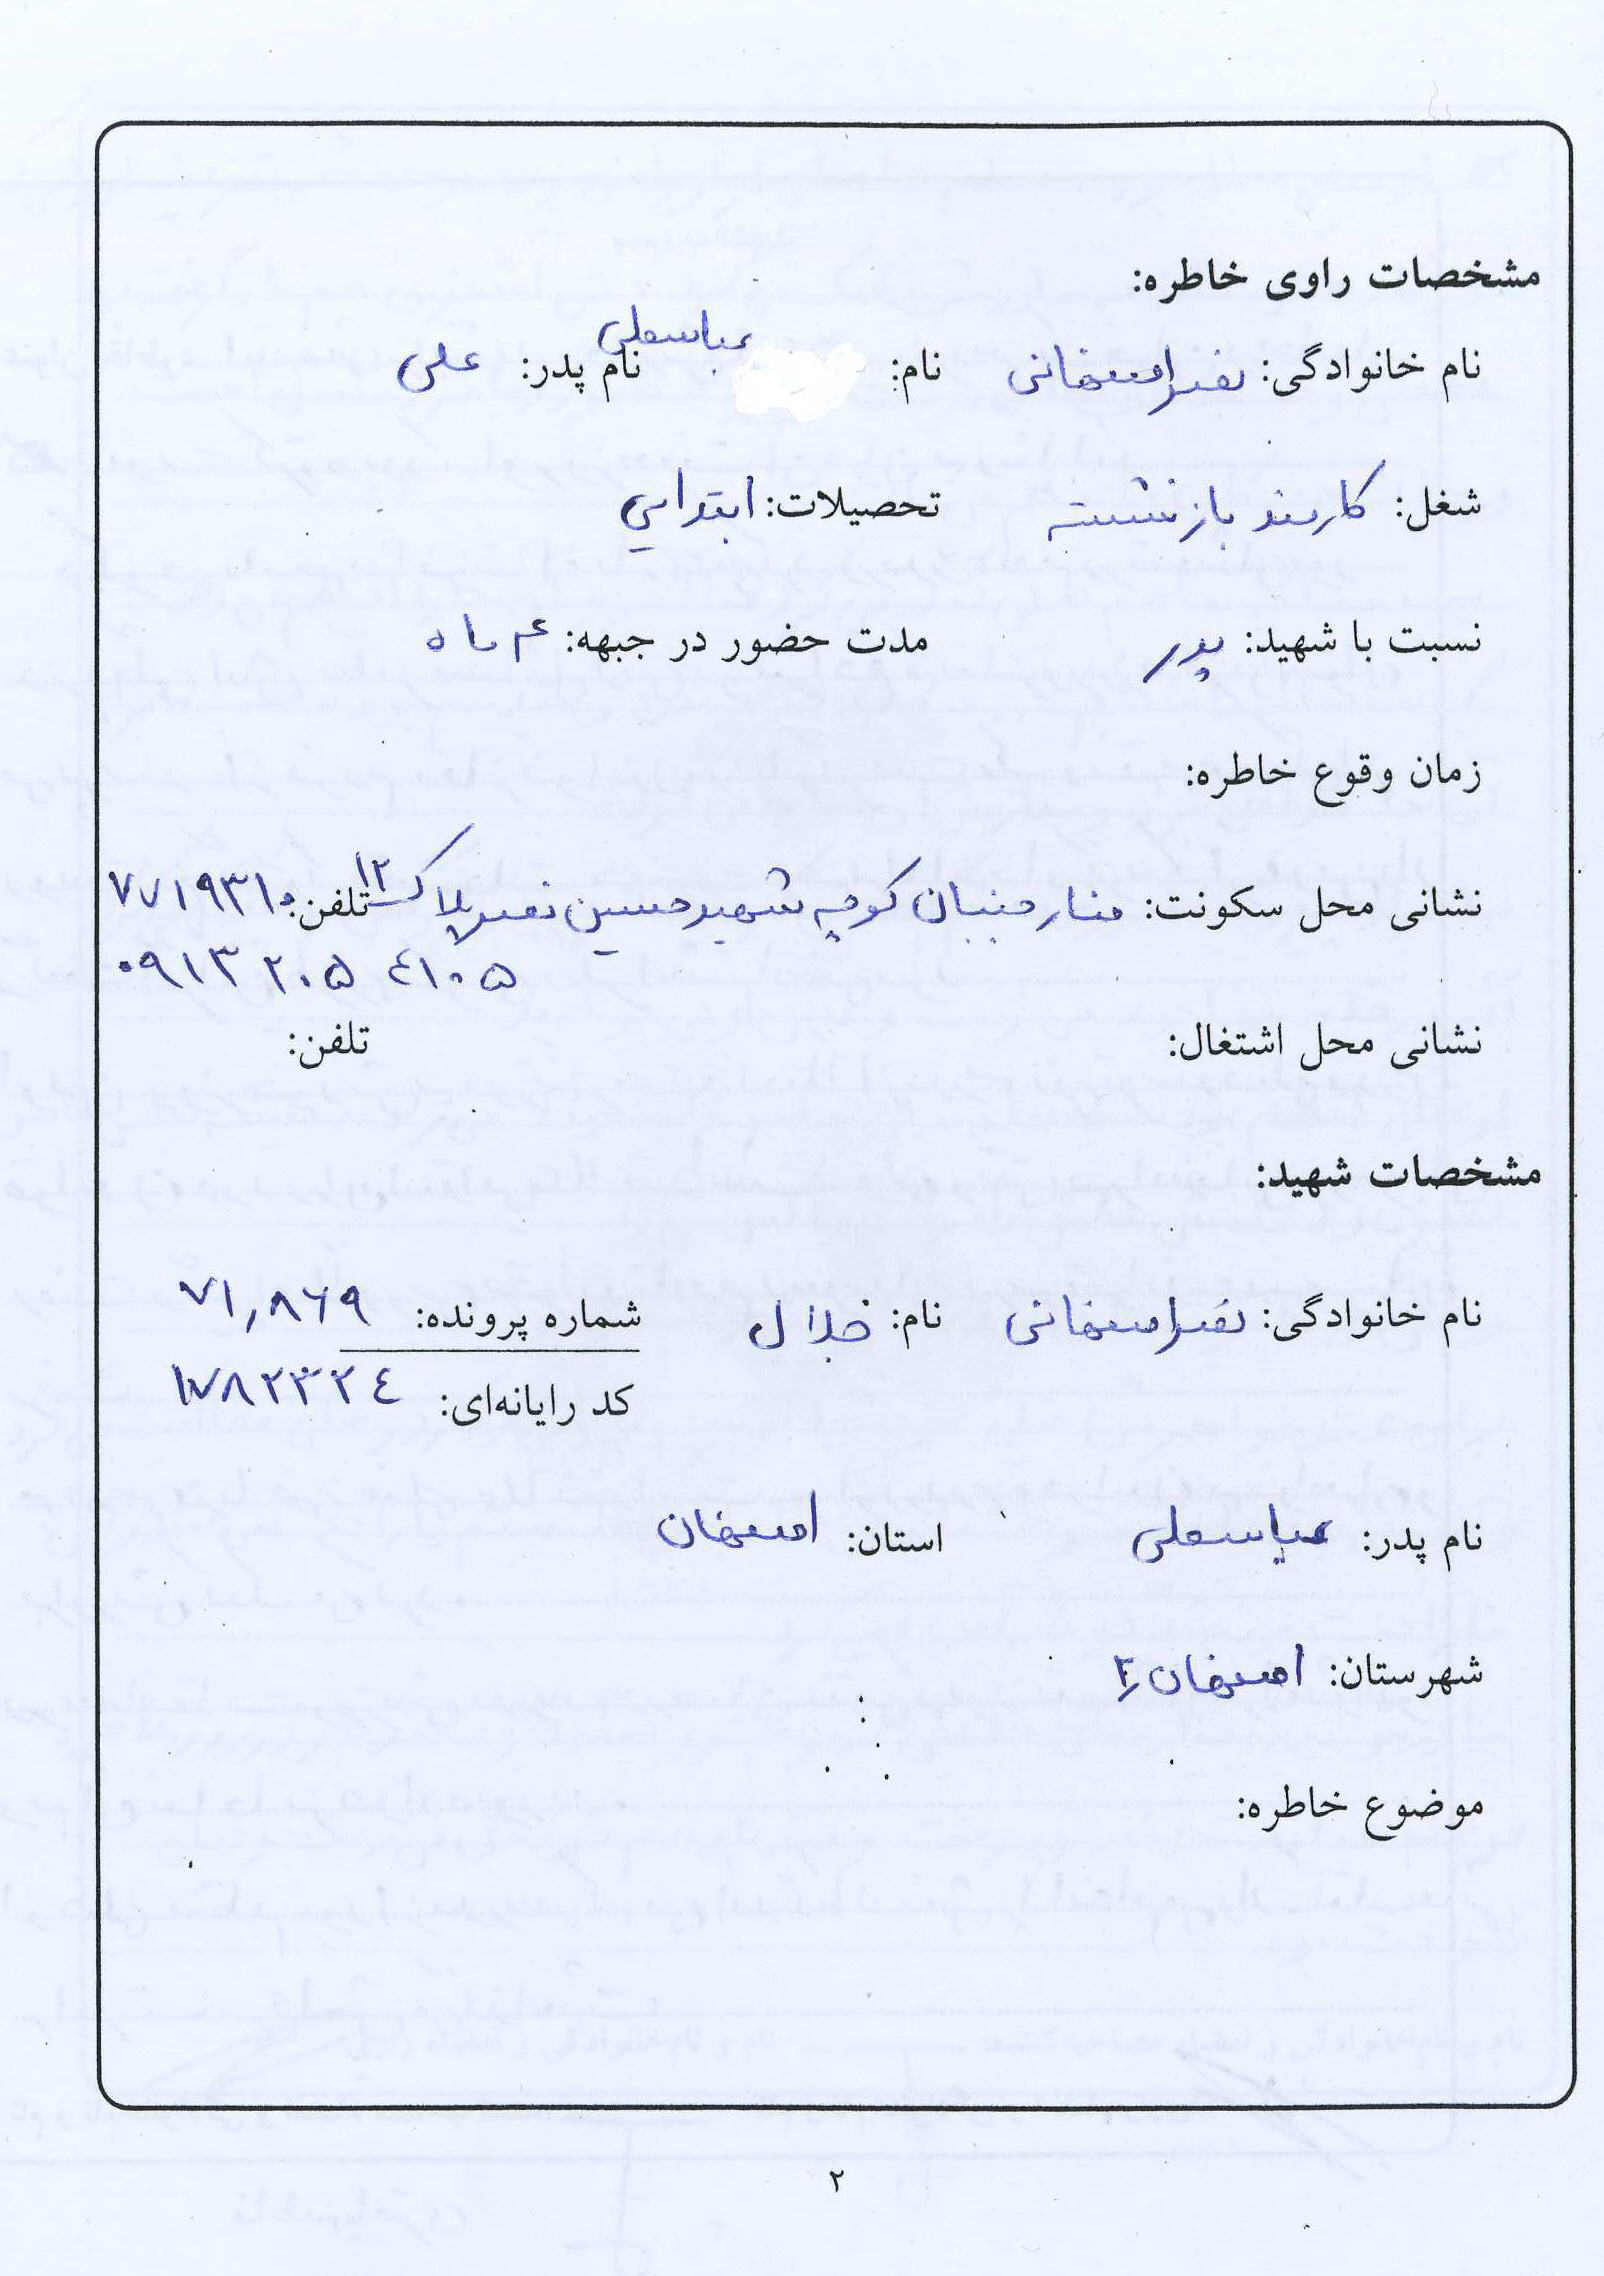 مشخصات راوی خاطره:
نام خانوادگی: نصیر اصفهانی نام: عباسعلی نام پدر: علی
شغل: کارمند بازنشسته تحصیلات: ابتدایی
نسبت با شهید: پدر مدت حضور در جبهه: ۴ ماه
زمان وقوع خاطره:
نشانی محل سکونت: منارجنبان کوچه شهید حسین نصیر پلاک ۱۲ تلفن: ۷۷۱۹۳۱۰
۰۹۱۳ ۲۰۵ ۴۱۰۵
نشانی محل اشتغال: تلفن:
مشخصات شهید:
نام خانوادگی: نصیر اصفهانی نام: شماره پرونده: ۷۱٫۸۶۹
کد رایانه‌ای: ۱۷۸۲۳۲۴
نام پدر: عباسعلی استان: اصفهان
شهرستان: اصفهان ۴
موضوع خاطره:
۲